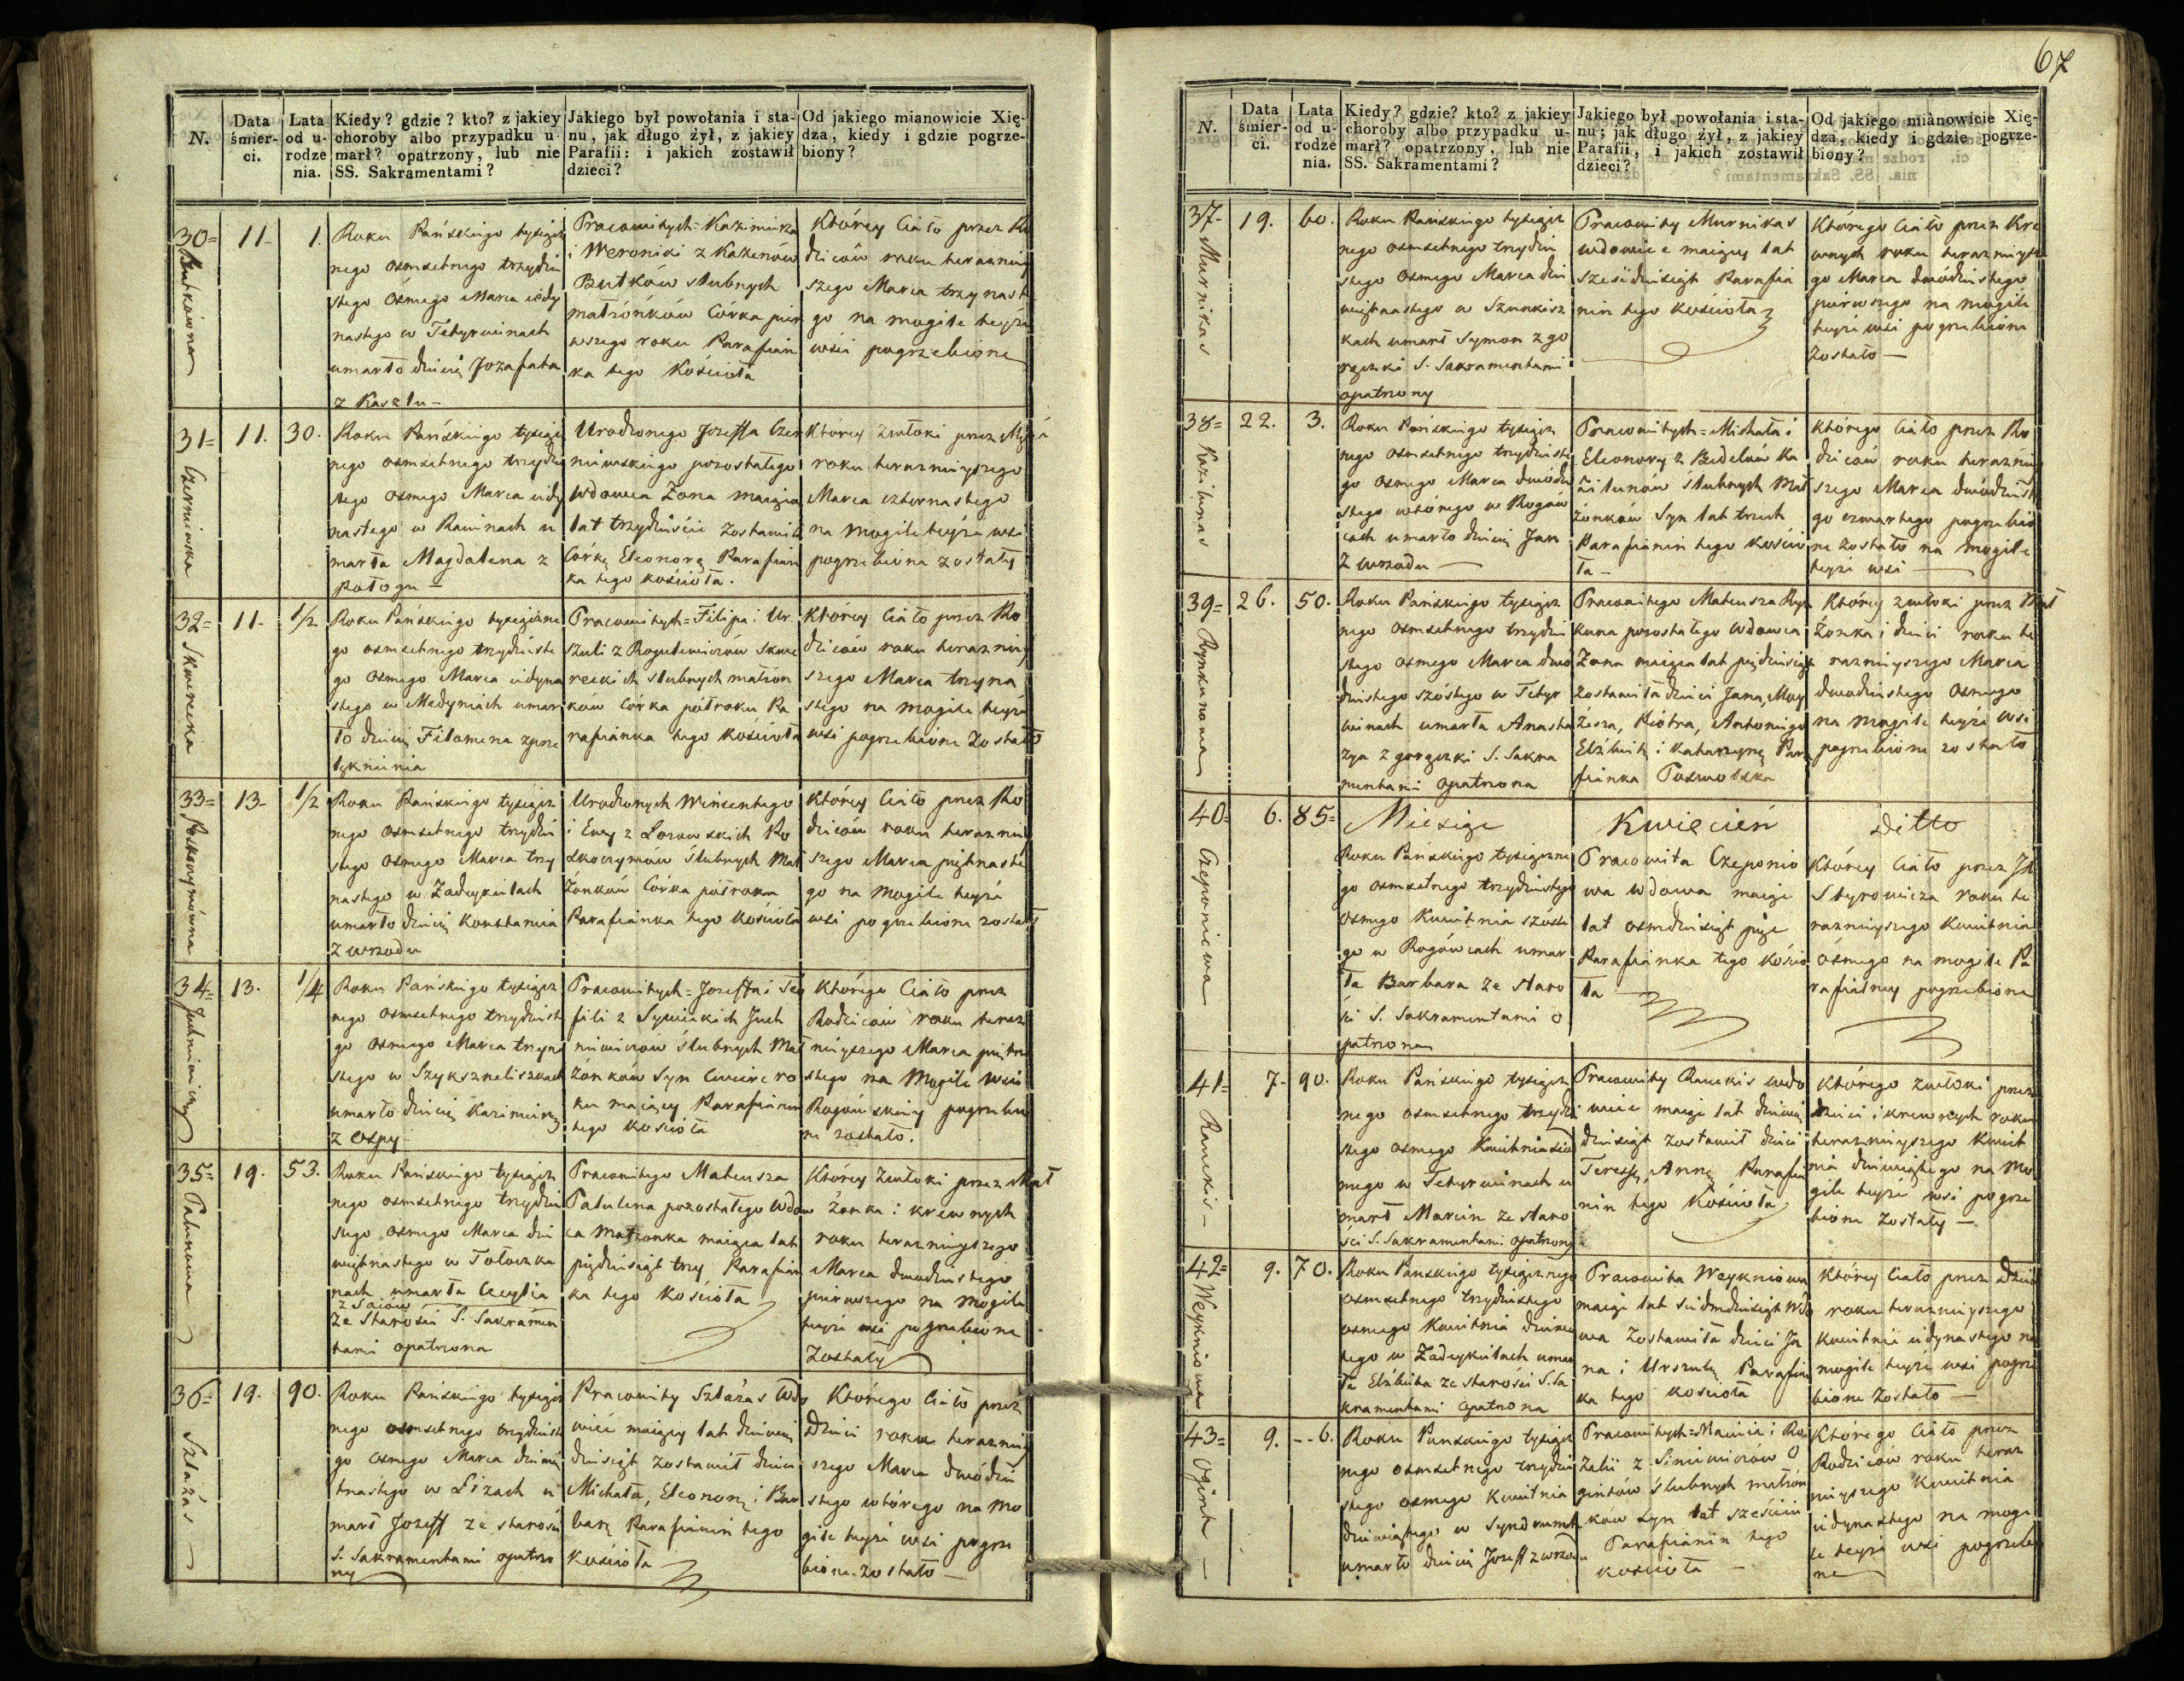 67
N.
Data śmierci.
Lata od urodzenia.
Kiedy? gdzie? kto? z jakiey
choroby albo przypadku u-
marł? opatrzony, lub nie
SS. Sakramentami?
Jakiego był powołania i sta-
nu, jak długo żył, z jakiey
Parafii: i jakich zostawił
dzieci?
Od jakiego mianowicie Xię-
dza, kiedy i gdzie pogrze-
biony?
30= 11- 1.
Butkówna
Roku Pańskiego tysiącz
nego osmsetnego trzydzie
stego ósmego Marca iedy
nastego w Tetyrwinach
umarło dziecię Jozafata
z Kaszlu-
Pracowitych= Kazimirza
i Weroniki z Kazenów
Butków slubnych
małżónków Córka pier
wszego roku Parafian
ka tego Kościoła
Którey Ciało przez Ro
dziców roku teraźniey
szego Marca trzynaste
go na mogile teyże
wsi pogrzebione
31= 11. 30.
Czerniewska
Roku Pańskiego tysiącz
nego osmsetnego trzydzie
stego osmego Marca iedy
nastego w Rawinach u
marła Magdalena z
połogu-
Urodzonego Jozeffa Czer
niewskiego pozostałego
Wdowca Żona maiąca
lat trzydzieście zostawiła
Córkę Eleonorę Parafian
ka tego kościoła.
Którey zwłoki przez Męża
roku teraznieyszego
Marca czternastego
na mogile teyże wsi
pogrzebione zostały
32= 11- 1/2
Skworecka
Roku Pańskiego tysiączne
go osmsetnego trzydzieste
go osmego Marca iedyna
stego w Medyniach umar
ło dziecię Filomena z prze
lęknienia
Pracowitych= Filipa i Ur
szuli z Rogulewiczów Skwo
reckich slubnych małżon
ków Córka półroku Pa
rafianka tego kościoła
Którey Ciało przez Ro
dziców roku terazniey
szego Marca trzyna
stego na mogile teyże
wsi pogrzebione zostało
33= 13- 1/2
Roskoczymówna
Roku Pańskiego tysiącz
nego osmsetnego trzydzie
stego osmego Marca trzy
nastego w Zadeykielach
umarło dziecię Konstancia
z wrzodu
Urodzonych Wincentego
i Ewy z Lozowskich Ro
skoczymów Ślubnych Mał
żonków Córka półroku
Parafianka tego Kościoła
Którey Ciało przez Ro
dziców roku terazniey
szego Marca piętnaste
go na Mogile teyże
wsi pogrzebione zostało
34= 13. 1/4
Juchniewiczy
Roku Pańskiego tysiącz
nego osmsetnego trzydzieste
go osmego Marca trzyna
stego w Szyksznieliszkach
umarło dziecię Kazimierz
z ospy-
Pracowitych= Jozeffa i Teo
fili z Sywickich Juch
niewiczow ślubnych Mał
żonków Syn ćwierć ro
ku maiący Parafianin
tego kościoła
Którego Ciało przez
Rodziców roku teraz
nieyszego Marca piętna
stego na Mogile wsi
Rogowskiey pogrzebio
ne zostało.
35= 19. 53.
Patulenowa
Roku Pańskiego tysiącz
nego osmsetnego trzydzie
stego osmego Marca dzie
więtnastego w Tołoczka
nach umarła Cecylia
z Saiów
ze Starości S. Sakramen
tami opatrzona
Pracowitego Mateusza
Patulena pozostałego Wdow
ca Małżonka maiąca lat
pięćdziesiąt trzy Parafian
ka tego kościoła
Którey Zwłoki przez Mał
żonka i krewnych
roku teraznieyszego
Marca dwudziestego
pierwszego na mogile
teyże wsi pogrzebione
zostały
36= 19. 90.
Szlażas
Roku Pańskiego tysiącz
nego osmsetnego trzydzieste
go osmego Marca dziewię
tnastego w Lizach u
marł Jozeff ze starości
S. Sakramentami opatrzo
ny
Pracowity Szlażas Wdo
wiec maiący lat dziewięć
dziesiąt zostawił dzieci
Michała, Eleonorę i Bar
barę Parafianin tego
Kościoła
Którego Ciało przez
Dzieci roku terazniey
szego Marca dwódzie
stego wtórego na mo
gile teyże wsi pogrze
bione zostało-
N.
Data śmierci.
Lata od urodzenia.
Kiedy? gdzie? kto? z jakiey
choroby albo przypadku u-
marł? opatrzony, lub nie
SS. Sakramentami?
Jakiego był powołania i sta-
nu; jak długo żył, z jakiey
Parafii, i jakich zostawił
dzieci?
Od jakiego mianowicie Xię-
dza, kiedy i gdzie pogrze-
biony?
37- 19. 60.
Murnikas
Roku Pańskiego tysiącz
nego osmsetnego trzydzie
stego osmego Marca dzie
więtnastego w Szunkisz
kach umarł Symon z go
rączki S. Sakramentami
opatrzony
Pracowity Murnikas
wdowiec maiący lat
sześćdziesiąt Parafia
nin tego kościoła
Którego Ciało przez Kre
wnych roku teraznieysze
go Marca dwódziestego
pierwszego na mogile
teyże wsi pogrzebione
Zostało-
38= 22. 3.
Kazilunas
Roku Pańskiego tysiącz
nego osmsetnego trzydzieste
go osmego Marca dwódzie
stego wtórego w Rogów
cach umarło dziecię Jan
Z wrzodu-
Pracowitych= Michała i
Eleonory z Bedelow Ka
zilunów ślubnych Mał
żonków Syn lat trzech
Parafianin tego kościo
ła-
Którego Ciało przez Ro
dziców roku terazniey
szego Marca dwódzieste
go czwartego pogrzebio
ne zostało na mogile
teyże wsi-
39= 26. 50.
Rynkunowa
Roku Pańskiego tysiącz
nego osmsetnego trzydzie
stego osmego Marca dwu
dziestego szóstego w Tetyr
winach umarła Anasta
zya z gorączki S. Sakra
mentami opatrzona
Pracowitego Mateusza Ryn
kuna pozostałego Wdowca
Żona maiąca lat pięćdziesiąt
zostawiła dzieci Jana, Moy
żesza, Piotra, Antoniego
Elżbietę i Katarzynę Para
fianka Poswolska
Którey zwłoki przez Mał
żonka i dzieci roku te
raznieyszego Marca
dwudziestego osmego
na mogile teyże wsi
pogrzebione zostało
Miesiąc Kwiecień Ditto
40= 6. 85=
Czeponiewa
Roku Pańskiego tysiączne
go osmsetnego trzydziestego
osmego Kwietnia szóste
go w Rogówcach umar
ła Barbara ze staro
ści S. Sakramentami o
patrzona
Pracowita Czeponio
wa wdowa maiąc
lat osmdziesiąt pięć
Parafianka tego kościo
ła
Którey Ciało przez
Styrowicza roku te
raznieyszego Kwietnia
ósmego na mogile Pa
rafialney pogrzebione
41= 7- 90.
Ramekis-
Roku Pańskiego tysiącz
nego osmsetnego trzydzie
stego osmego Kwietnia siod
mego w Tetyrwinach u
marł Marcin ze staro
ści S. Sakramentami opatrzony
Pracowity Ramekis wdo
wiec maiąc lat dziewięć
dziesiąt zostawił dzieci
Teressę, Annę Parafia
nin tego Kościoła
Którego zwłoki przez
Dzieci i krewnych roku
teraznieyszego Kwiet
nia dziewiątego na mo
gile teyże wsi pogrze
bione zostały-
42= 9. 70.
Weykniowa
Roku Pańskiego tysiącznego
osmsetnego trzydziestego
osmego Kwietnia dziewią
tego w Zadeykielach umar
ła Elżbieta ze starości S. Sa
kramentami opatrzona
Pracowita Weykniowa
maiąc lat siedmdziesiąt Wdo
wa zostawiła dzieci Ja
na i Urszulę Parafian
ka tego kościoła
Którey Ciało przez Dzieci
roku teraznieyszego
Kwietnia iedynastego na
mogile teyże wsi pogrze
bione zostało-
43= 9. --6.
Ogint-
Roku Pańskiego tysiącz
nego osmsetnego trzydzie
stego osmego Kwietnia
dziewiątego w
umarło dziecię Jozeff z wrzodu
Pracowitych= Macieia i Ro
zalii z Simiewiczów O
gintów ślubnych małżon
ków syn lat sześciu
Parafianin tego
kościoła-
Którego Ciało przez
Rodziców roku teraz
nieyszego Kwietnia
iedynastego na mogi
le teyże wsi pogrzebio
ne